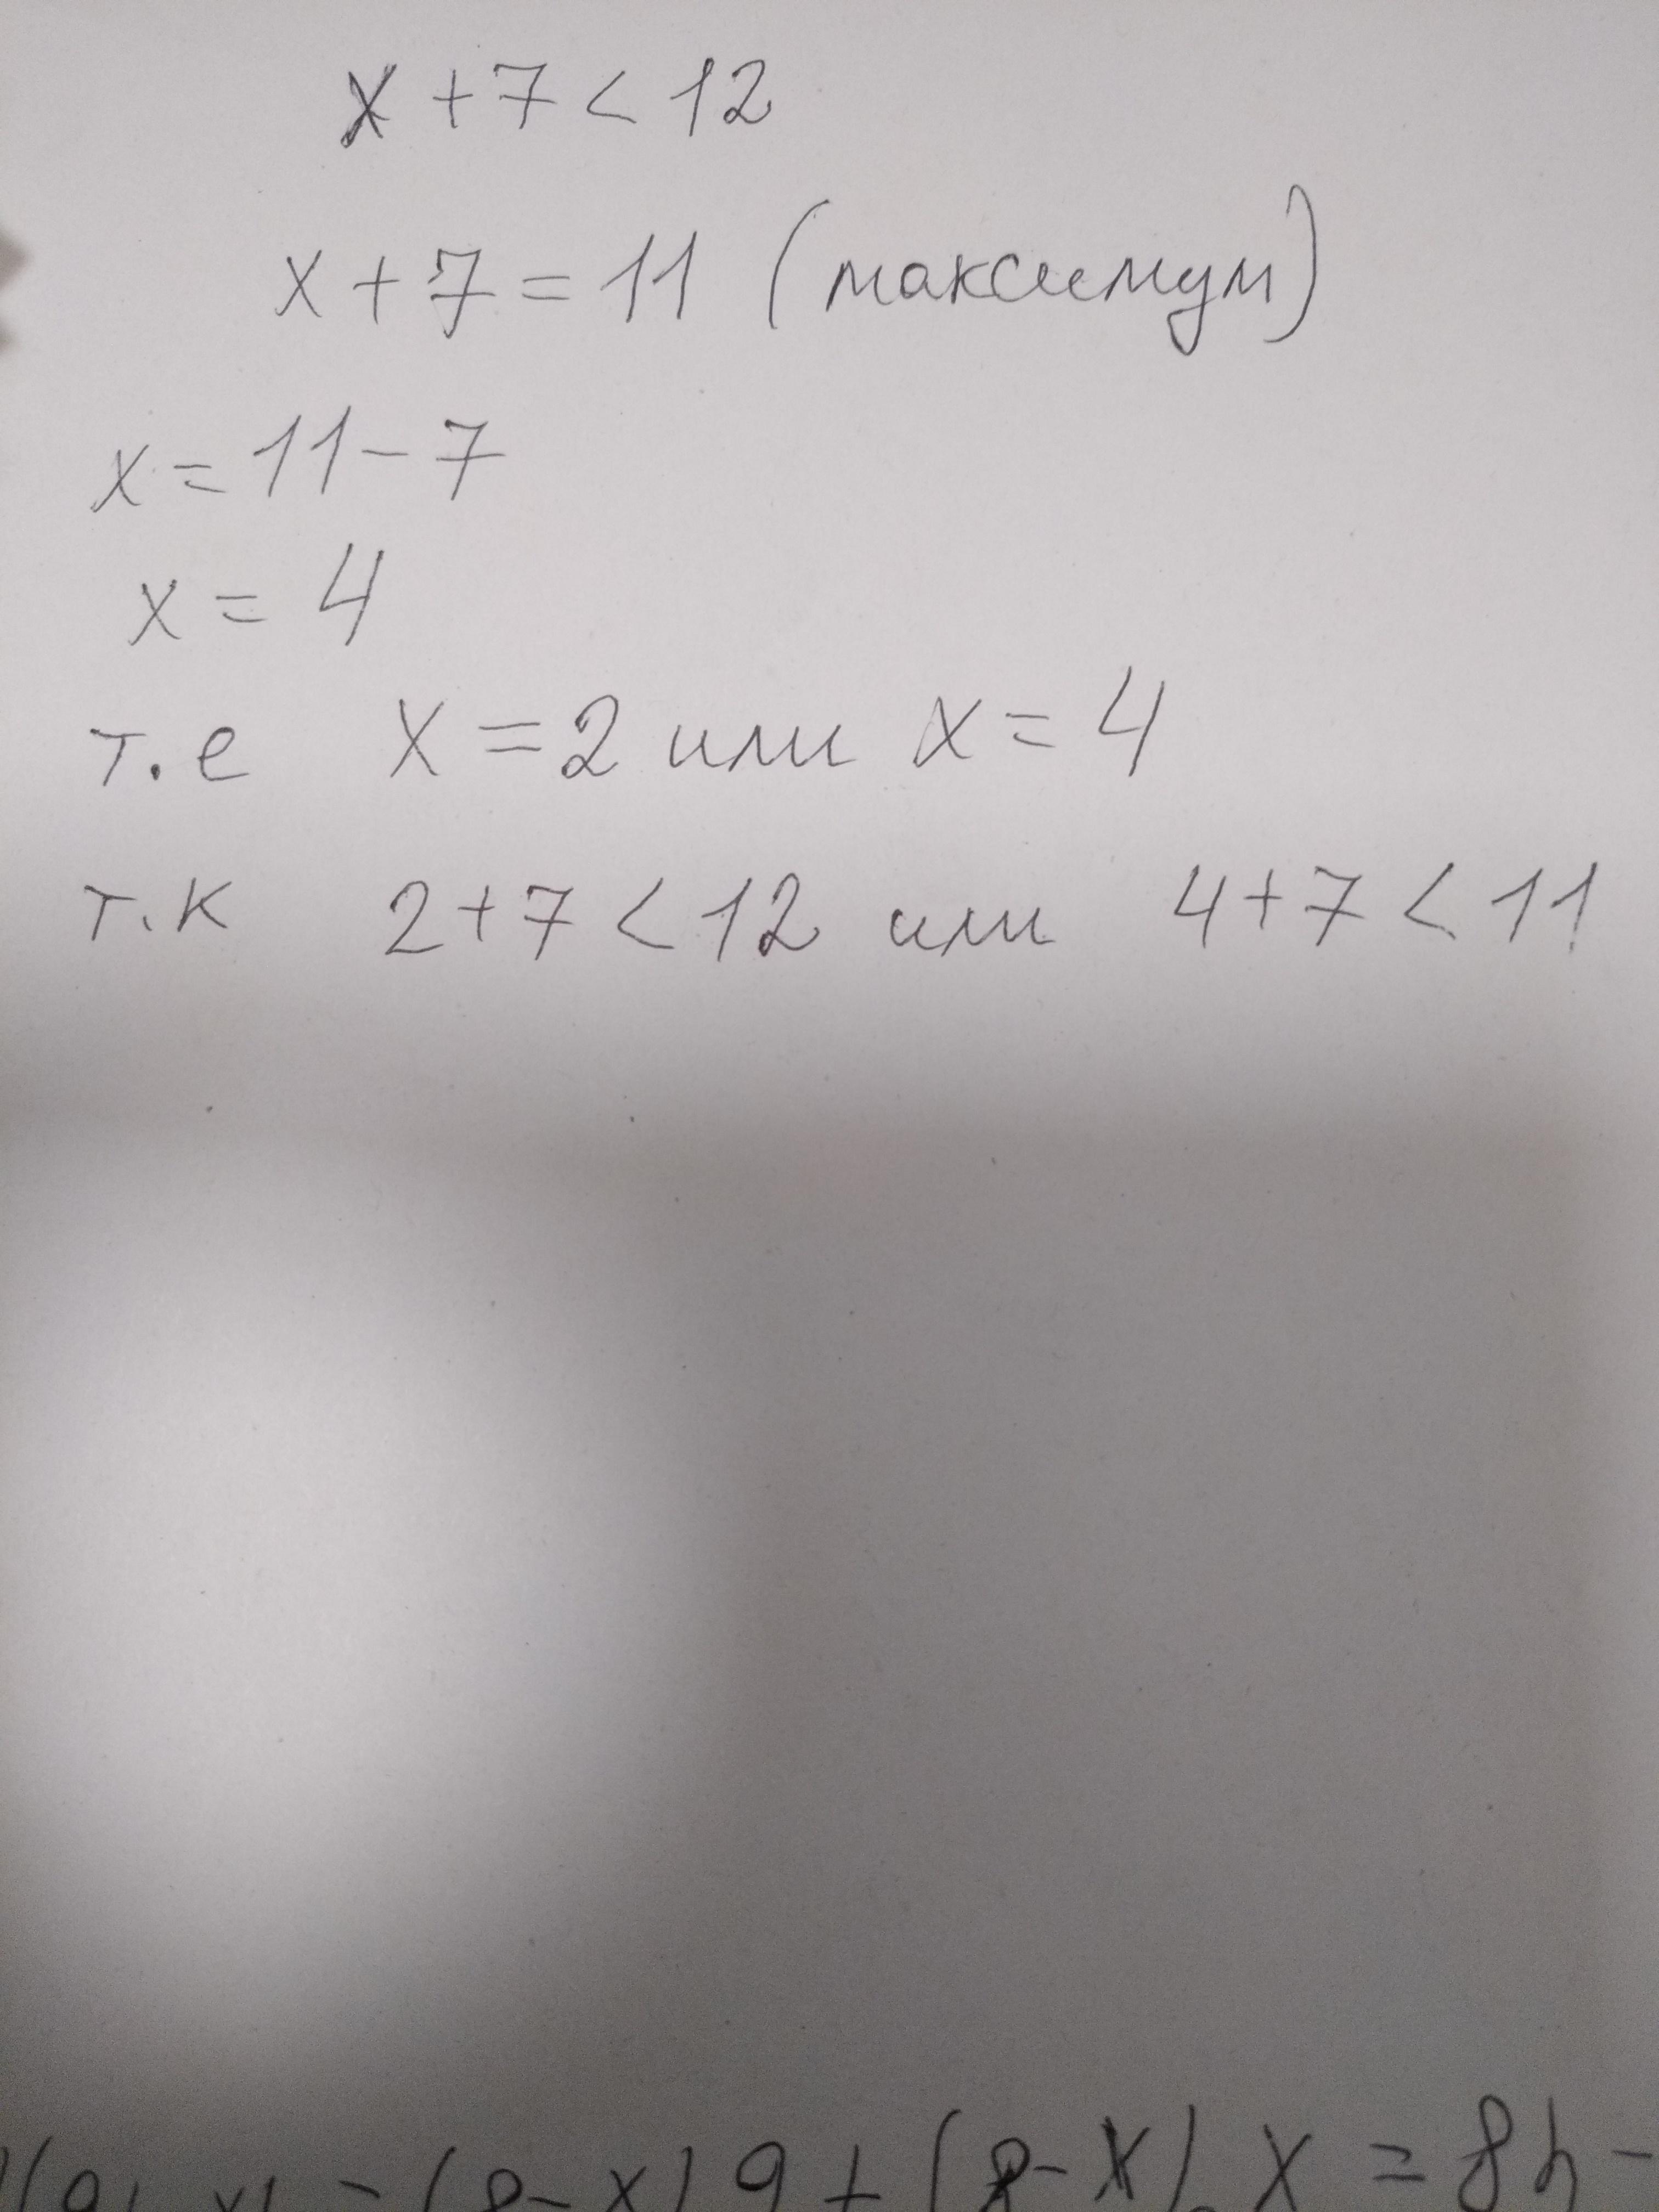 x + 7 < 12
x + 7 = 11 (максимум)
x = 11 - 7
x = 4
т.е x = 2 или x = 4
т.к 2 + 7 < 12 или 4 + 7 < 11
(8 - x) 9 + (8 - x) x = 8h -